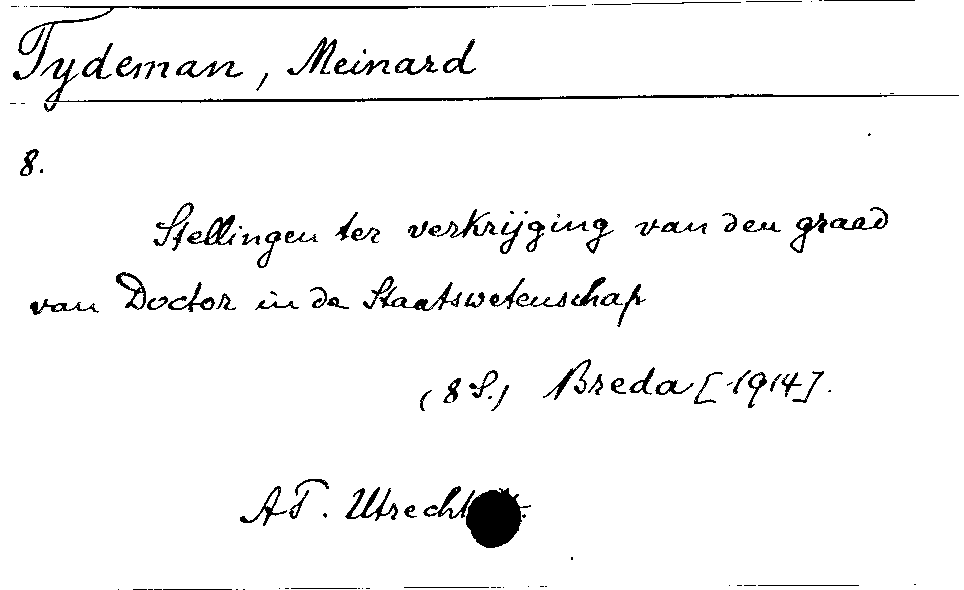 Tydeman, Meinard
8.
Stellingen ter verkrijging van den graad
van Doctor in de Staatswetenschap
(8 S.) Breda [1914].
AT. Utrecht